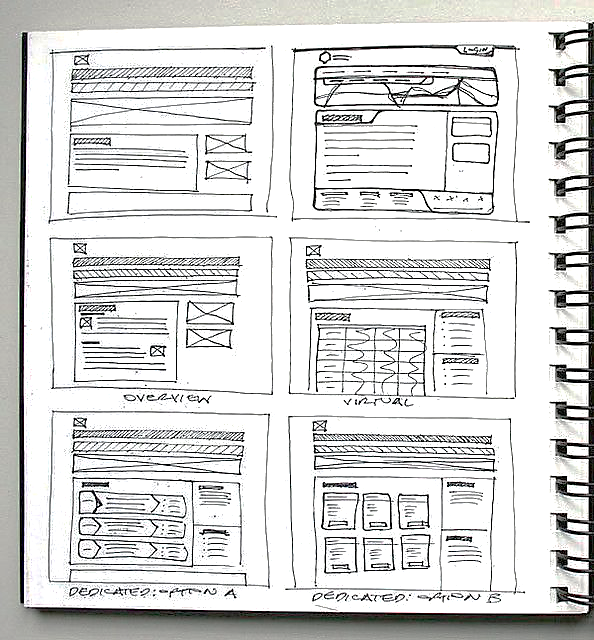 LOGIN
OVERVIEW
VIRTUAL
DEDICATED: OPTION A
DEDICATED: OPTION B